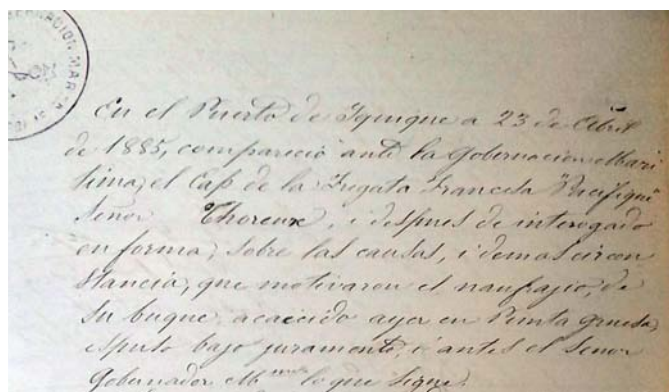 GOBERNACION MAR
En el Puerto de Iquique a 23 de Abril
de 1885, compareció ante la Gobernacion Mari
tima, el Cap de la Fragata Francesa "Pacifique"
Señor Thoreux, i despues de interogado
en forma, sobre las causas, i demas circon
stancia, que motivaron el naufrajio, de
su buque, acaecido ayer en Punta gruesa,
espuso bajo juramento, i antes el Señor
Gobernador Mmo lo que sigue.